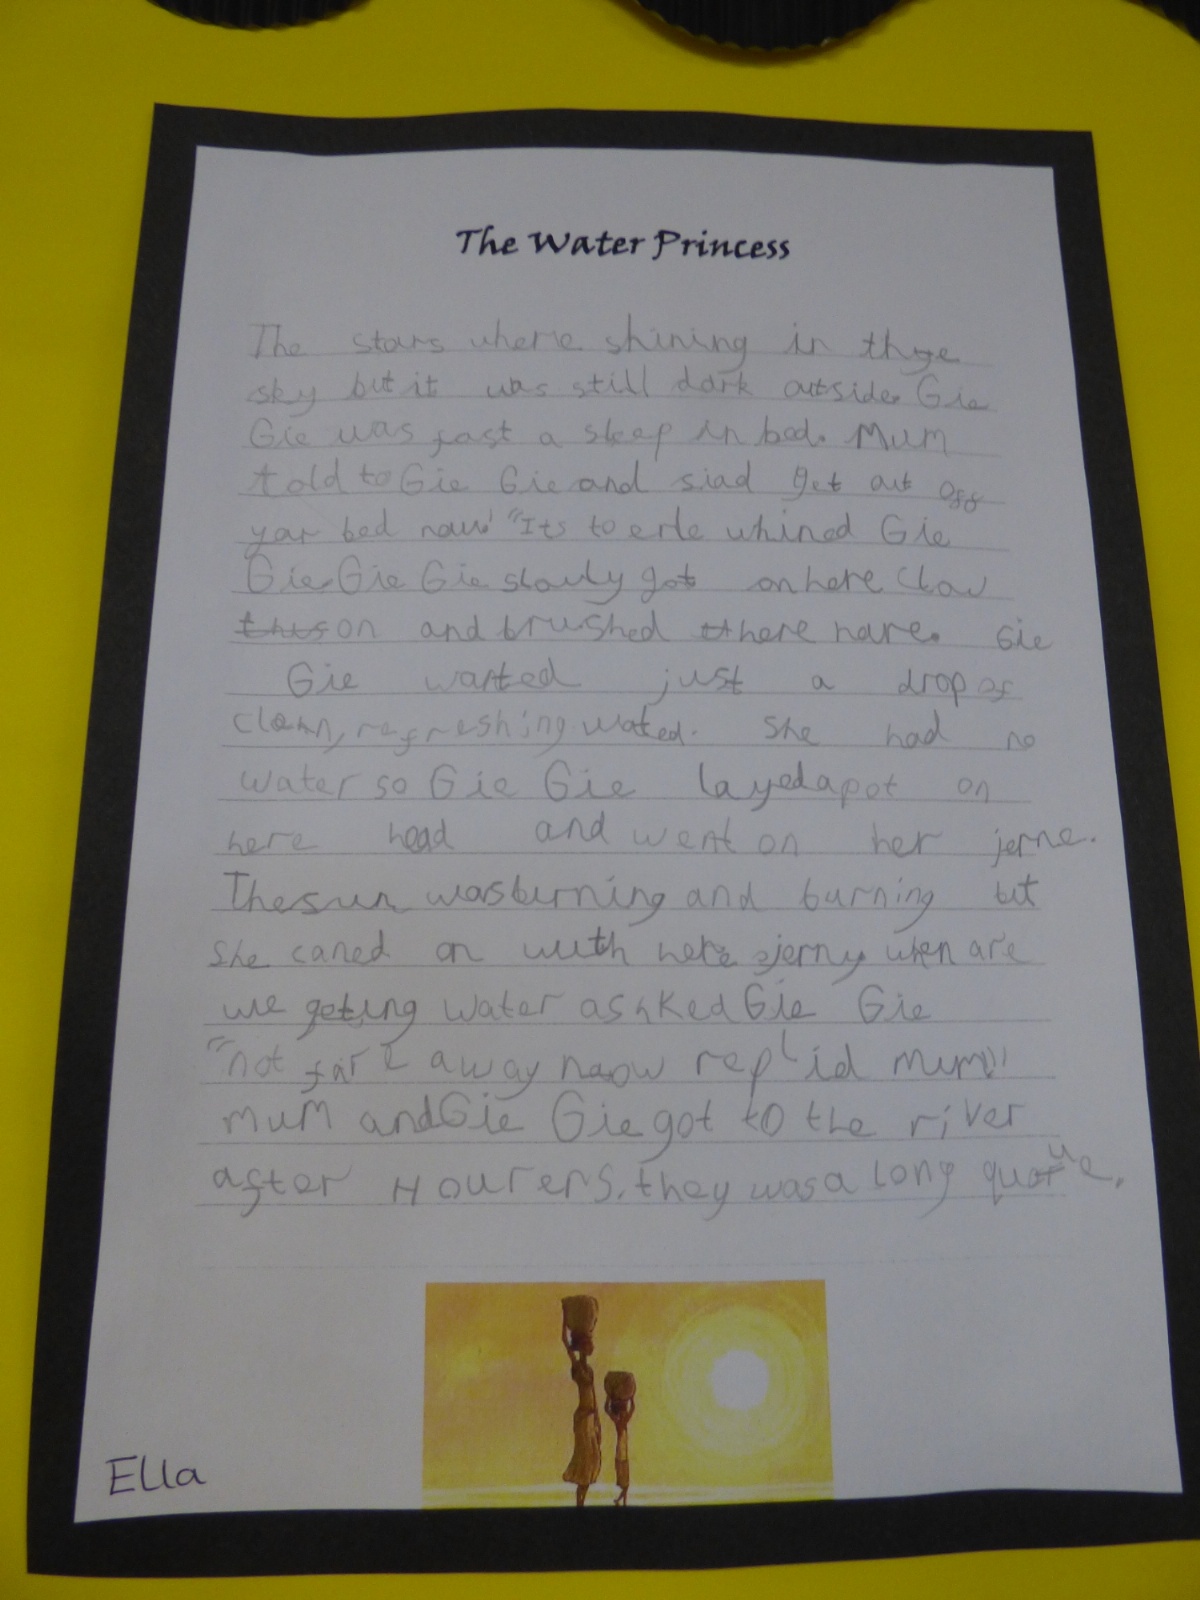 The Water Princess
The stars where shining in thye
sky but it was still dark outside. Gie
Gie was fast a sleep in bed. Mum
told to Gie Gie and siad get out off
your bed now" "Its to erle whined Gie
Gie. Gie Gie slowly got on here clow
this on and brushed there hare. Gie
Gie wanted just a drop of
clean, refreshing wated. She had no
water so Gie Gie layed a pot on
here head and went on her jerne.
The sun was burning and burning but
she caried on with here jerny when are
we geting water ashked Gie Gie
"not far away naow replid mum"
mum and Gie Gie got to the river
after Hourers. they was a long queue.
Ella